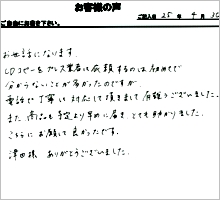 お客様の声
ご記入日 25年 4月 30
ご自由にお書き下さい。
お世話になります。
CDコピーをプレス業者に依頼するのは初めてで
分からないことが多かったのですが、
電話で丁寧に対応して頂きまして有難うございました。
また、商品も予定より早めに届き、とても助かりました。
こちらにお願して良かったです。
津田様 ありがとうございました。